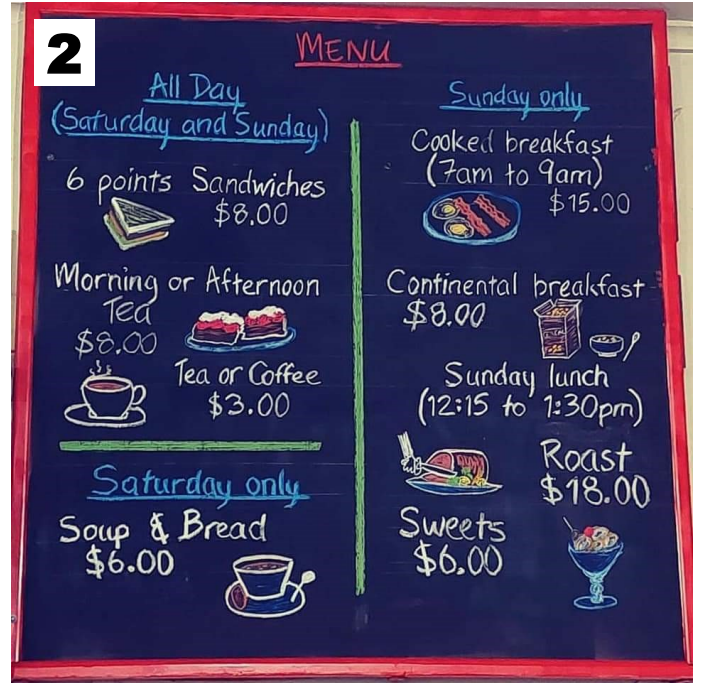 2
MENU
All Day
(Saturday and Sunday)
6 points Sandwiches
$8.00
Morning or Afternoon
Tea
$8.00
Tea or Coffee
$3.00
Saturday only
Soup & Bread
$6.00
Sunday only
Cooked breakfast
(7am to 9am)
$15.00
Continental breakfast
$8.00
Sunday lunch
(12:15 to 1:30pm)
Roast
$18.00
Sweets
$6.00